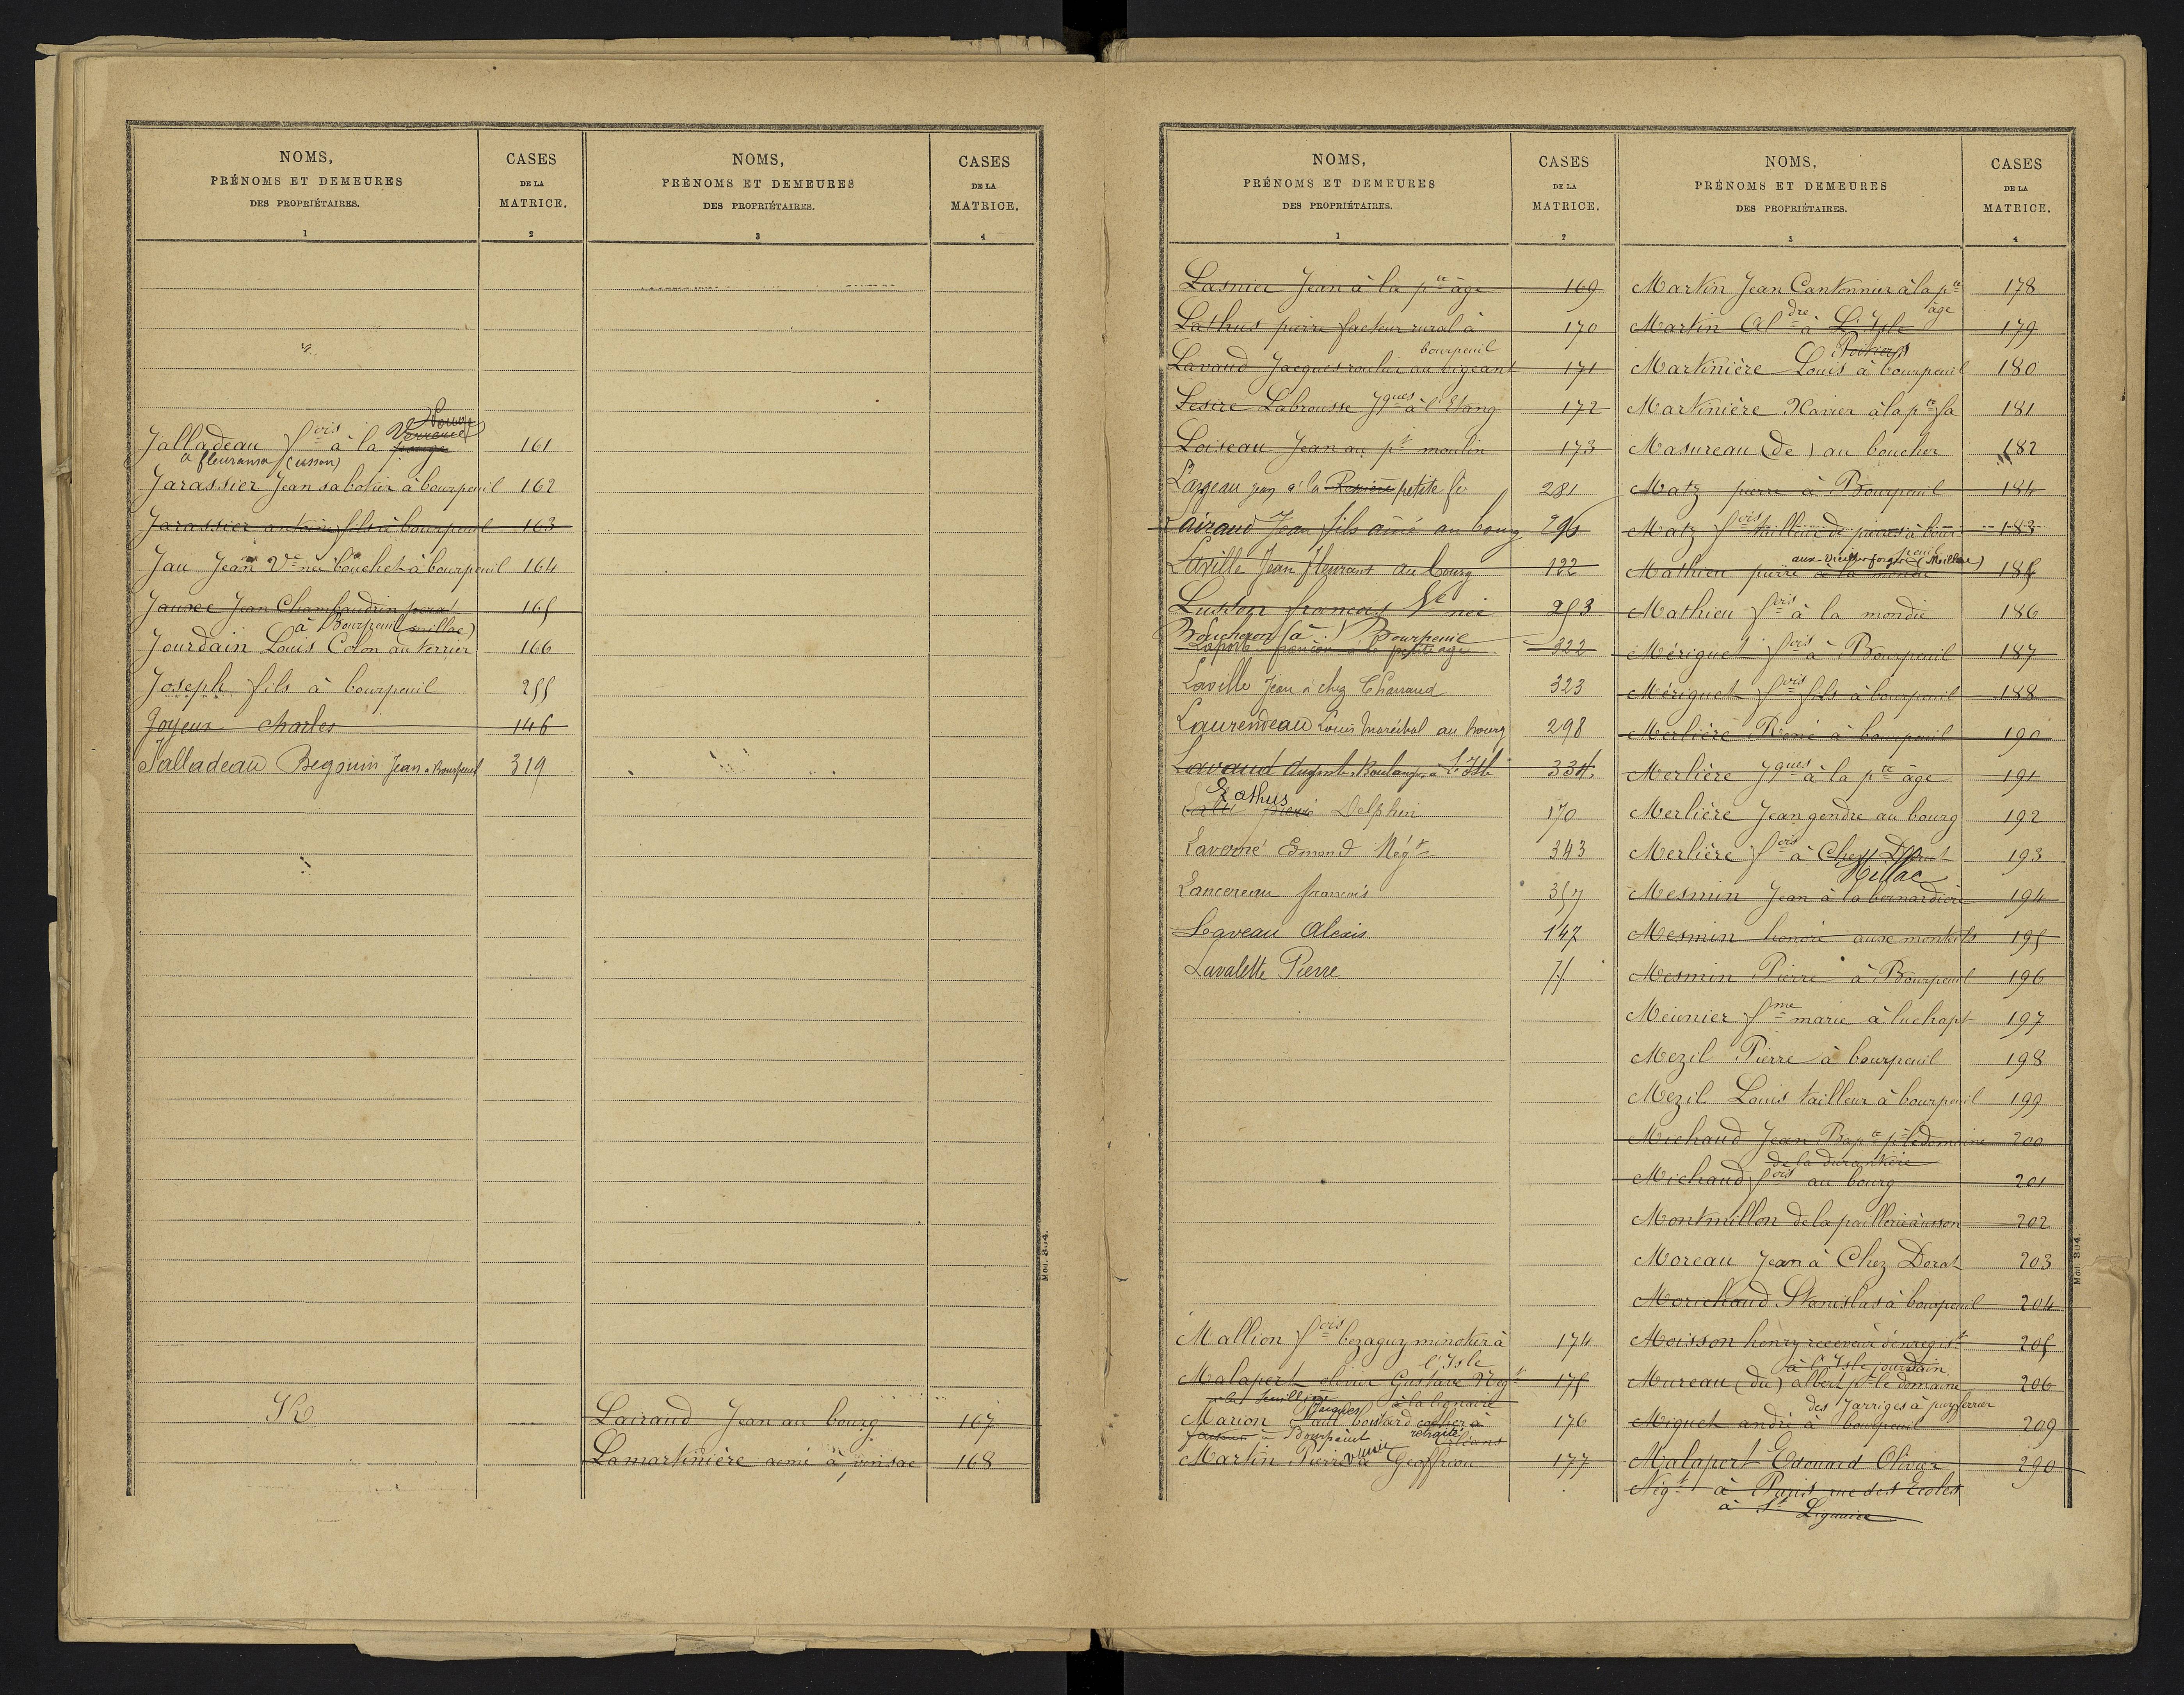 NOMS,
PRÉNOMS ET DEMEURES
DES PROPRIÉTAIRES.
1
CASES
DE LA
MATRICE.
2
Jalladeau fois à la Verrerie 161
a fleuransa (usson)
Jarassier Jean sabotier à bourpeuil 162
Jarassier antoine fils à bourpeuil 163
Jau Jean Ve née bouchet à bourpeuil 164
Jauxe Jean Chambaudrin 165
à Bourpeuil (millac)
Jourdain Louis Colon au terrier 166
Joseph fils à bourpeuil 255
Joyeux charles 146
Jalladeau Begouin Jean a Bourpeuil 319
K
NOMS,
PRÉNOMS ET DEMEURES
DES PROPRIÉTAIRES.
3
CASES
DE LA
MATRICE.
4
Lairaud Jean au bourg 167
Lamartinière aimé à 168
Mod. 804.
NOMS,
PRÉNOMS ET DEMEURES
DES PROPRIÉTAIRES.
1
CASES
DE LA
MATRICE.
2
Lasnier Jean à la pte âge 169
Lathus pierre facteur rural à 170
bourpeuil
Lavaud Jacques roulier au vigeant 171
Lesire Labrousse Jques à l'Etang 172
Loiseau Jean au pt moulin 173
Largeau jean à la petite fé 281
Lairaud Jean fils aîné au bourg 296
Laville Jean fleurant au bourg 122
Lusson françois Ve née 253
Boucheron (à) Bourpeuil
Laporte françois à la petite age 322
Laville Jean à chez Charraud 323
Laurendeau Louis Maréchal au bourg 298
Lavaud Auguste Boulanger à L'Isle 334
Lathus
pierre Delphin 170
Laverré Emond Négt 343
Lancereau françois 357
Laveau Alexis 147
Lavalette Pierre
Mallion fois bezaguy minotier à 174
l'Isle
Malapert olivier Gustave Négt 175
à la lionaire
Jacques
Marion Paul boutard cocher à 176
facteur à Bourpeuil retraité
Orléans
Martin Pierre Geoffrion 177
NOMS,
PRÉNOMS ET DEMEURES
DES PROPRIÉTAIRES.
3
CASES
DE LA
MATRICE.
4
Martin Jean Cantonnier à la pte 178
âge
Martin Aldre à L'Isle 179
Poitiers
Martinière Louis à bourpeuil 180
Martinière Xavier à la pte fa 181
Masureau (de) au boucher 182
Matz pierre à Bourpeuil 184
Matz fois tailleur de pierres à bour 183
peuil
aux vieilles forges (Meillac)
Mathieu pierre à la mondie 185
Mathieu fois à la mondie 186
Mériguet fois à Bourpeuil 187
Mériguet fois fils à bourpeuil 188
Merlière René à bourpeuil 190
Merlière Jques à la pte âge 191
Merlière Jean gendre au bourg 192
Merlière fois à Chez Dorat 193
Millac
Mesmin Jean à la bernardière 194
Mesmin honoré aux montils 195
Mesmin Pierre à Bourpeuil 196
Meunier fme marie à luchapt 197
Mezil Pierre à bourpeuil 198
Mezil Louis tailleur à bourpeuil 199
Michaud Jean Bapte pr le domaine 200
de la durantière
Michaud fois au bourg 201
Montmillon de la paillerie à usson 202
Moreau Jean à Chez Dorat 203
Morichaud Stanislas à bourpeuil 204
Moisson henry receveur d'enregist 205
à l'Isle jourdain
Mureau (du) albert pr le domaine 206
des Jarriges à puyferrier
Miguet andré à bourpeuil 209
Malapert Edouard Olivier 290
Négt à Paris rue des Ecoles
à St Liguaire
Mod. 804.